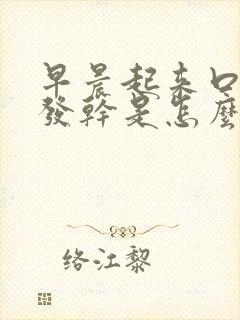 早晨起来口
發幹是怎麼
络江黎